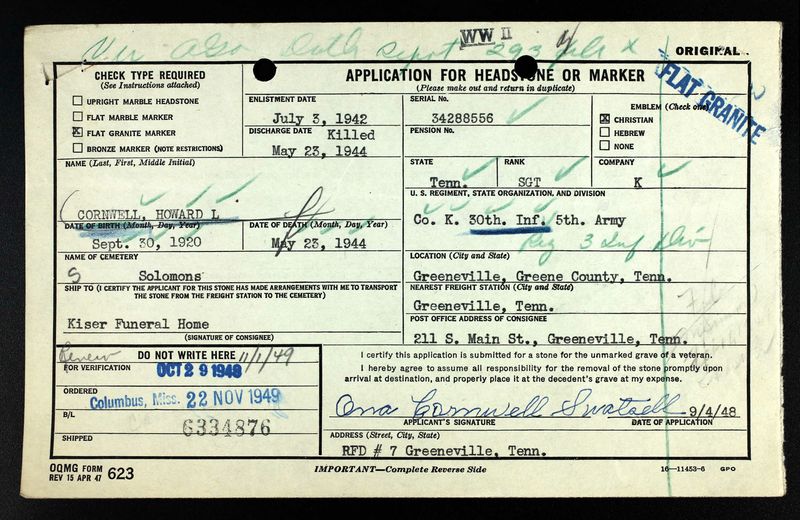 Ver Also Death Report 293 file x
WW II
ORIGINAL
CHECK TYPE REQUIRED
(See Instructions attached)
UPRIGHT MARBLE HEADSTONE
FLAT MARBLE MARKER
X FLAT GRANITE MARKER
BRONZE MARKER (NOTE RESTRICTIONS)
APPLICATION FOR HEADSTONE OR MARKER
(Please make out and return in duplicate)
ENLISTMENT DATE
July 3, 1942
DISCHARGE DATE Killed
May 23, 1944
SERIAL No.
34288556
PENSION No.
EMBLEM (Check one)
X CHRISTIAN
HEBREW
NONE
FLAT GRANITE
NAME (Last, First, Middle Initial)
CORNWELL, HOWARD L
STATE
Tenn.
RANK
SGT
COMPANY
K
U. S. REGIMENT, STATE ORGANIZATION, AND DIVISION
Co. K. 30th. Inf. 5th. Army
Reg 3 Inf Div
DATE OF BIRTH (Month, Day, Year)
Sept. 30, 1920
DATE OF DEATH (Month, Day, Year)
May 23, 1944
NAME OF CEMETERY
S Solomons
LOCATION (City and State)
Greeneville, Greene County, Tenn.
SHIP TO (I CERTIFY THE APPLICANT FOR THIS STONE HAS MADE ARRANGEMENTS WITH ME TO TRANSPORT
THE STONE FROM THE FREIGHT STATION TO THE CEMETERY)
Kiser Funeral Home
(SIGNATURE OF CONSIGNEE)
NEAREST FREIGHT STATION (City and State)
Greeneville, Tenn.
POST OFFICE ADDRESS OF CONSIGNEE
211 S. Main St., Greeneville, Tenn.
DO NOT WRITE HERE
Renew 11/1/49
FOR VERIFICATION
OCT 29 1948
ORDERED
Columbus, Miss. 22 NOV 1949
B/L
6334876
SHIPPED
I certify this application is submitted for a stone for the unmarked grave of a veteran.
I hereby agree to assume all responsibility for the removal of the stone promptly upon
arrival at destination, and properly place it at the decedent's grave at my expense.
Ona Cornwell Swatsell 9/4/48
APPLICANT'S SIGNATURE DATE OF APPLICATION
ADDRESS (Street, City, State)
RFD # 7 Greeneville, Tenn.
OQMG FORM
REV 15 APR 47 623
IMPORTANT—Complete Reverse Side
16—11453-6 GPO